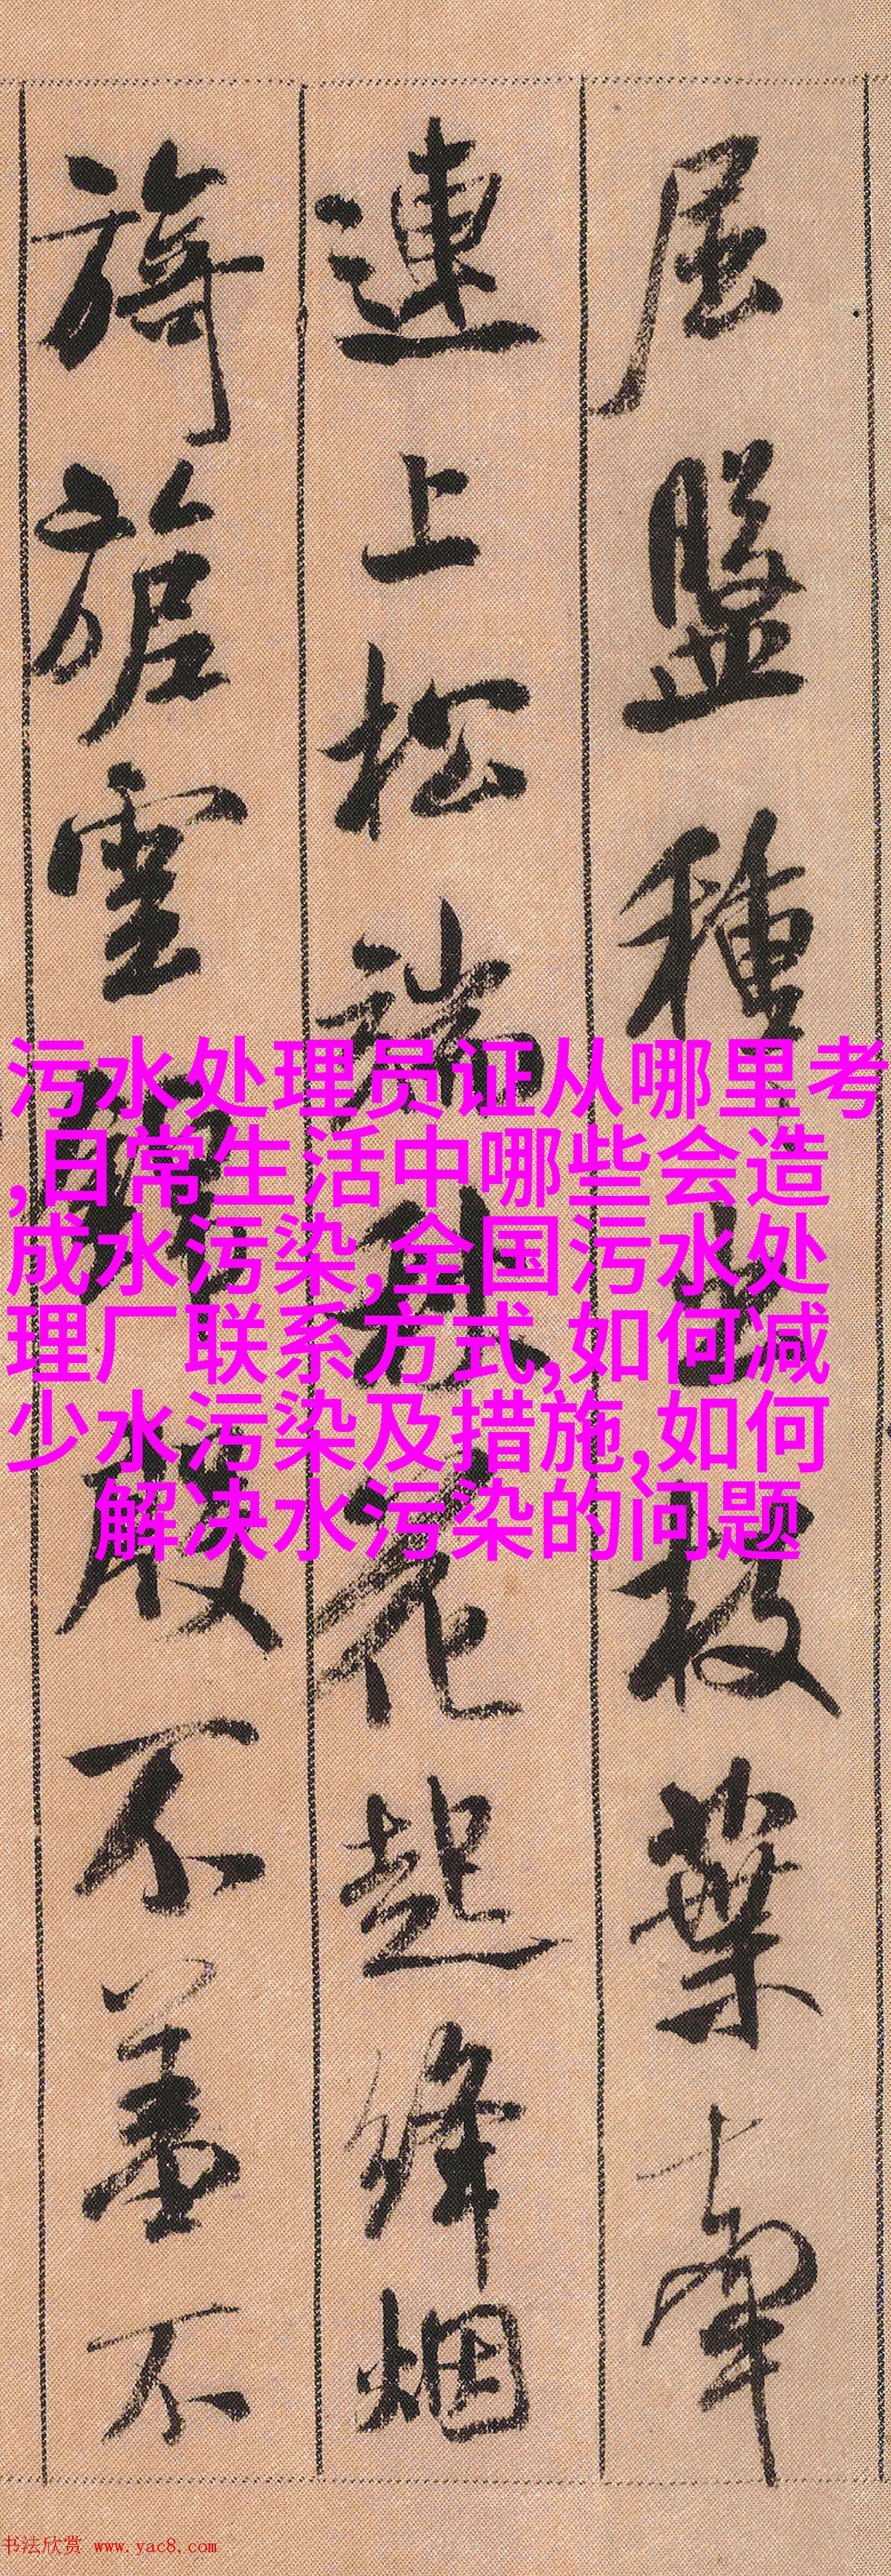 屈盤種出枝葉牽
連上松端秋花起絳烟
旖旎雲錦殷不羞不
污水处理员证从哪里考
,日常生活中哪些会造
成水污染,全国污水处
理厂联系方式,如何减
少水污染及措施,如何
解决水污染的问题
书法欣赏 www.yac8.com